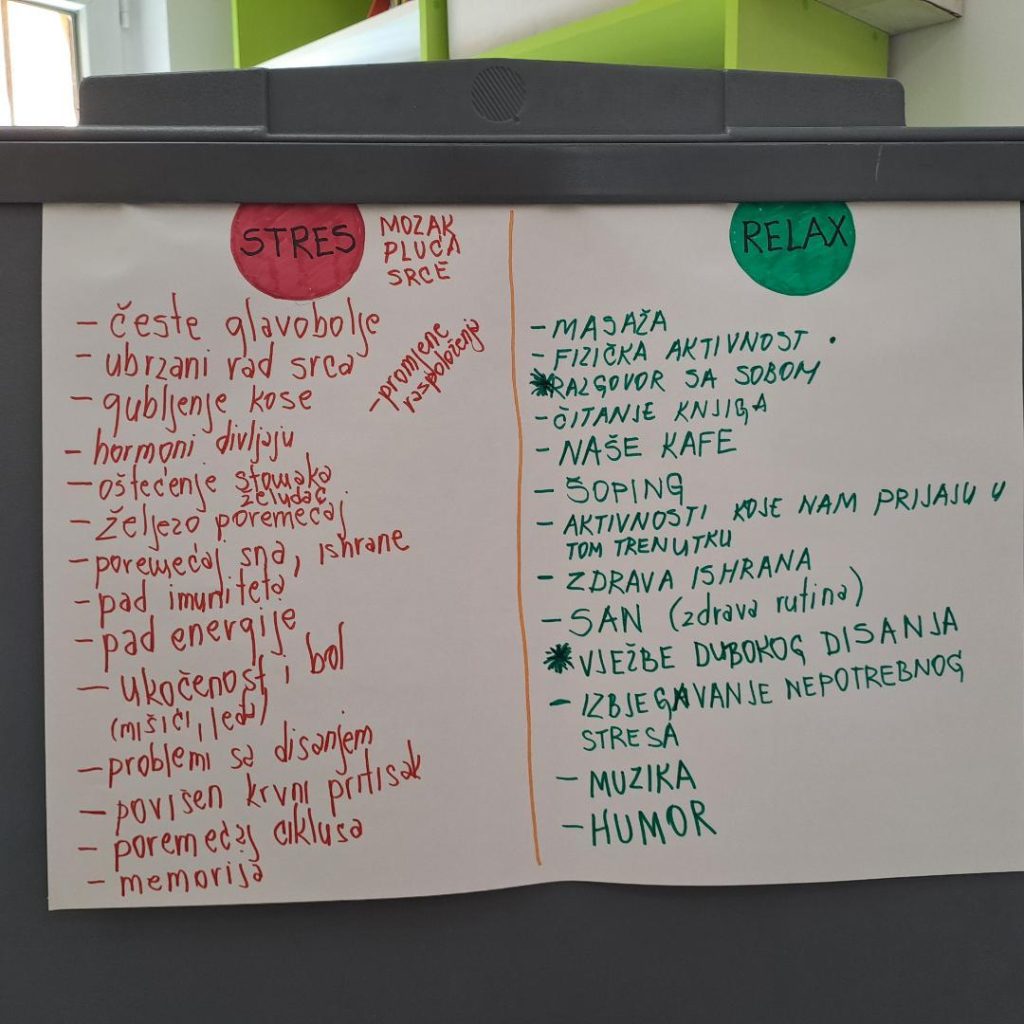 STRES
MOZAK
PLUĆA
SRCE
- česte glavobolje
- ubrzani rad srca
- gubljenje kose
- promjene
raspoloženja
- hormoni divljaju
- oštećenje stomaka
želudac
- željezo poremećaj
- poremećaj sna, ishrane
- pad imuniteta
- pad energije
- ukočenost i bol
(mišići, leđa)
- problemi sa disanjem
- povišen krvni pritisak
- poremećaj ciklusa
- memorija
RELAX
- MASAŽA
- FIZIČKA AKTIVNOST .
* RAZGOVOR SA SOBOM
- ČITANJE KNJIGA
- NAŠE KAFE
- ŠOPING
- AKTIVNOSTI KOJE NAM PRIJAJU U
TOM TRENUTKU
- ZDRAVA ISHRANA
- SAN (zdrava rutina)
* VJEŽBE DUBOKOG DISANJA
- IZBJEGAVANJE NEPOTREBNOG
STRESA
- MUZIKA
- HUMOR